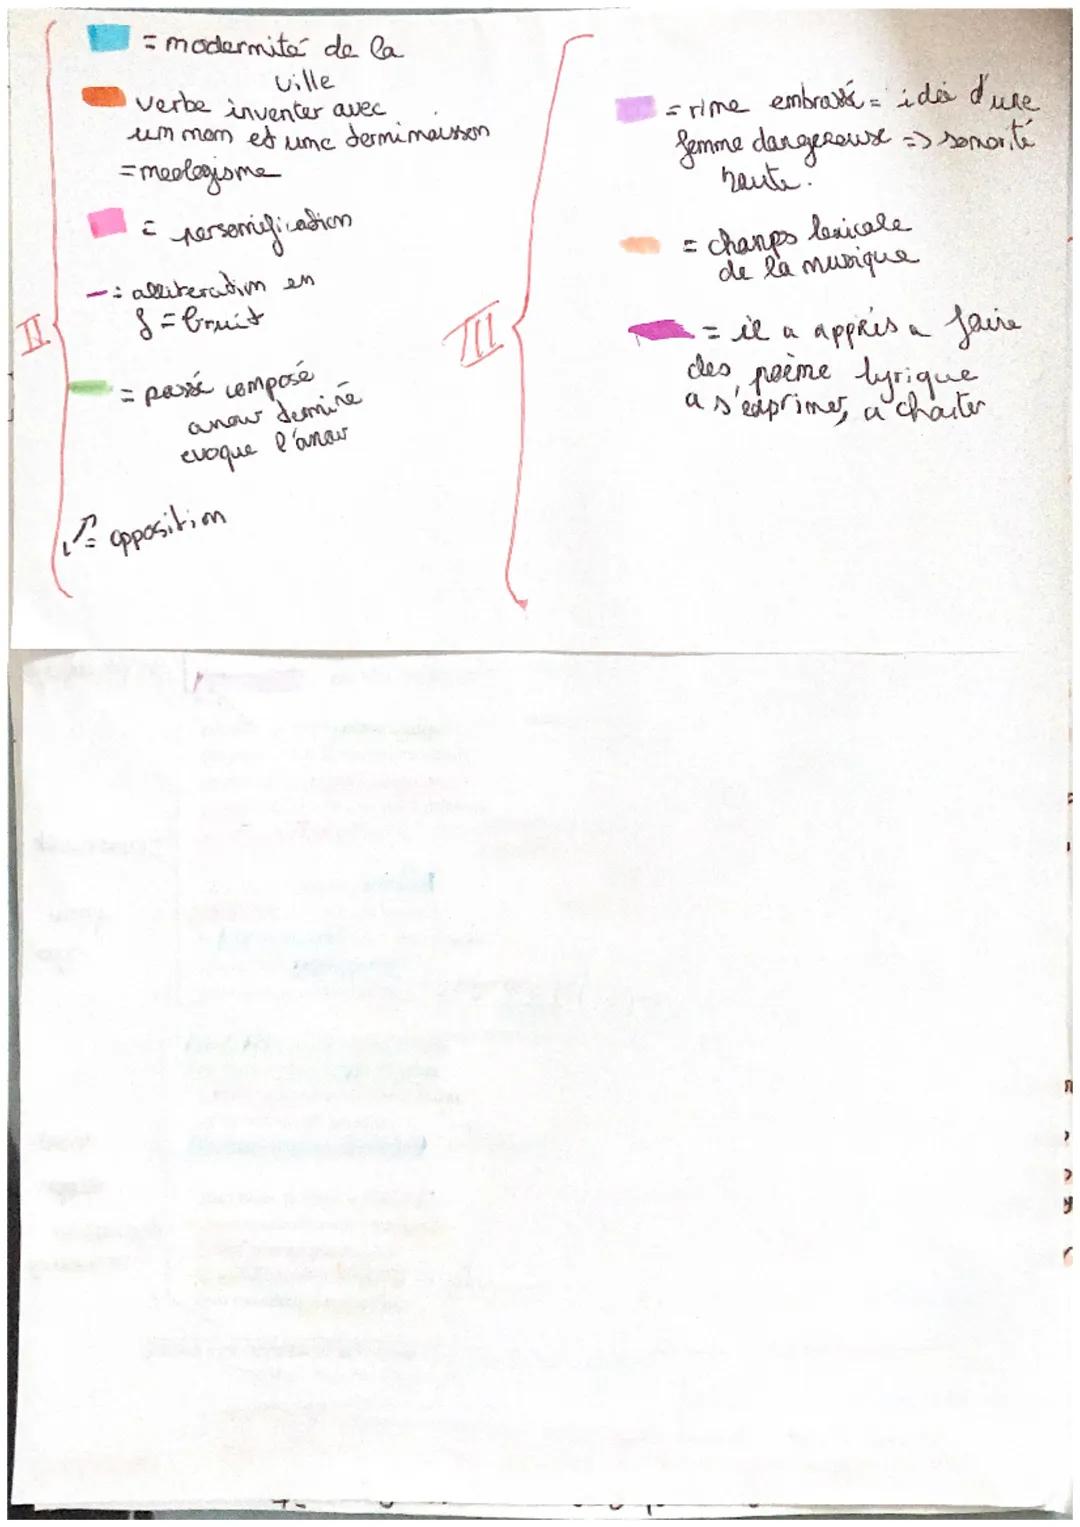 II
= modernité de la
ville
verbe inventer avec
um mom et une terminaisson
= meologisme
= personnification
= alliteration en
f = bruit
= passé composé
amour terminé
evoque l'amour
= opposition
III
= rime embrassé = idée d'une
femme dangereuse => sonorité
haute.
= champs lexicale
de la musique
= il a appris a faire
des poème lyrique
a s'exprimer, a chanter